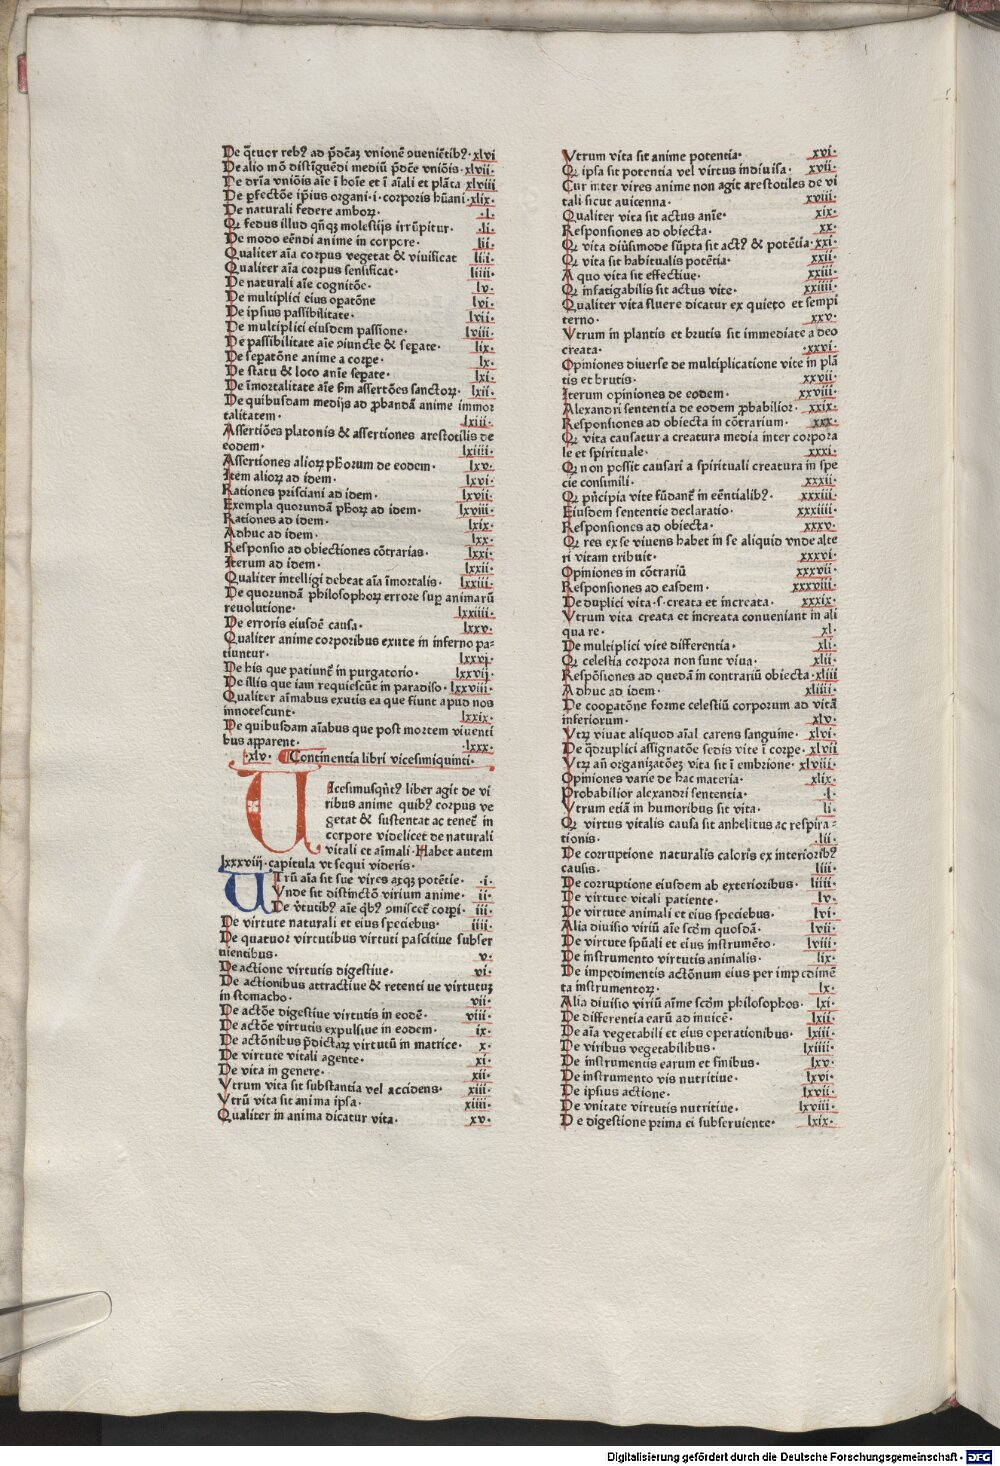 De q̃tuor reb⁹ ad p̃dc̃aꝝ vnionē ↄueniētib⁹· xlvi
De alio mō distīguēdi mediū p̃dc̃e vniōis· xlvii·
De dr̃ia vniōis aīe ī hoīe et ī aīali et plāta xlviii
De ꝑfectōe ip̃ius organi·i·corporis hūani·xlix·
De naturali federe amboꝝ· ·l·
Qꝛ fedus illud qñqꝫ molestijs irrūpitur· ·li·
De modo eēndi anime in corpore· lii·
Qualiter aīa corpus vegetat & viuificat liii·
Qualiter aīa corpus sensificat· liiii·
De naturali aīe cognitōe· lv·
De multiplici eius oꝑatōne lvi·
De ipsius passibilitate· lvii·
De multiplici eiusdem passione· lviii·
De passibilitate aīe ↄiuncte & seꝑate· lix·
De seꝑatōne anime a corꝑe· lx·
De statu & loco anīe seꝑate· lxi·
De īmortalitate aīe ẜm assertōes sanctoꝝ· lxii·
De quibusdam medijs ad ꝓbandā anime immor
talitatem· lxiii·
Assertiōes platonis & assertiones arestotilis de
eodem· lxiiii·
Assertiones alioꝝ ph̃orum de eodem· lxv·
Item alioꝝ ad idem· lxvi·
Rationes prisciani ad idem· lxvii·
Exempla quorundā ph̃oꝝ ad idem· lxviii·
Rationes ad idem· lxix·
Adhuc ad idem· lxx·
Responsio ad obiectiones cōtrarias· lxxi·
Iterum ad idem· lxxii·
Qualiter intelligi debeat aīa īmortalis· lxxiii·
De quorundā philosophoꝝ errore suꝑ animarū
reuolutione· lxxiiii·
De erroris eiusdē causa· lxxv·
Qualiter anime corporibus exute in inferno pa-
tiuntur· lxxvi·
De his que patiunt̃ in purgatorio· lxxvij·
De illis que iam requiescūt in paradiso· lxxviii·
Qualiter aīmabus exutis ea que fiunt apud nos
innotescunt· lxxix·
De quibusdam aīabus que post mortem viuenti
bus apparent· ·lxxx·
·xlv· Continentia libri vicesimiquinti·
UIcesimusqñt⁹ liber agit de vi
ribus anime quib⁹ corpus ve
getat & sustentat ac tenet̃ in
corpore videlicet de naturali
vitali et aīmali· Habet autem
lxxxviij· capitula vt sequi videris·
UTrū aīa sit sue vires aꝛqꝫ potētie· ·i·
Vnde sit distinctō virium anime· ii·
De v̄tutib⁹ aīe q̄b⁹ ↄmiscet̃ corꝑi· iii·
De virtute naturali et eius speciebus· iiii·
De quatuor virtutibus virtuti pascitiue subser
uientibus· v·
De actione virtutis digestiue· vi·
De actionibus attractiue & retenti ue virtutuꝫ
in stomacho· vii·
De actōe digestiue virtutis in eodē· viii·
De actōe virtutis expulsiue in eodem· ix·
De actōnibus p̃dictaꝝ virtutū in matrice· x·
De virtute vitali agente· xi·
De vita in genere· xii·
Vtrum vita sit substantia vel accidens· xiii·
Vtrū vita sit anima ipsa· xiiii·
Qualiter in anima dicatur vita· xv·
Vtrum vita sit anime potentia· xvi·
Qꝛ ipsa sit potentia vel virtus indiuisa· xvii·
Cur inter vires anime non agit arestotiles de vi
tali sicut auicenna· xviii·
Qualiter vita sit actus anīe· xix·
Responsiones ad obiecta· xx·
Qꝛ vita diūsimode sūpta sit act⁹ & potētia· xxi·
Qꝛ vita sit habitualis potētia· xxii·
A quo vita sit effectiue· xxiii·
Qꝛ infatigabilis sit actus vite· xxiiii·
Qualiter vita fluere dicatur ex quieto et sempi
terno· xxv·
Vtrum in plantis et brutis sit immediate a deo
creata· ·xxvi·
Opiniones diuerse de multiplicatione vite in plā
tis et brutis· xxvii·
Iterum opiniones de eodem· xxviii·
Alexandri sententia de eodem ꝓbabilior· xxix·
Responsiones ad obiecta in cōtrarium· xxx·
Qꝛ vita causatur a creatura media inter corpora
le et spirituale· xxxi·
Qꝛ non possit causari a spirituali creatura in spe
cie consimili· xxxii·
Qꝛ pñcipia vite fūdant̃ in eēntialib⁹· xxxiii·
Eiusdem sententie declaratio· xxxiiii·
Responsiones ad obiecta· xxxv·
Qꝛ res ex se viuens habet in se aliquid vnde alte
ri vitam tribuit· xxxvi·
Opiniones in cōtrariū xxxvii·
Responsiones ad easdem· xxxviii·
De duplici vita·s·creata et increata· xxxix·
Vtrum vita creata et increata conueniant in ali
qua re· xl·
De multiplici vite differentia· xli·
Qꝛ celestia corpora non sunt viua· xlii·
Respōsiones ad quedā in contrariū obiecta·xliii
Adhuc ad idem· xliiii·
De cooꝑatōne forme celestiū corporum ad vitā
inferiorum· xlv·
Vtꝝ viuat aliquod aīal carens sanguine· xlvi·
De q̄druplici assignatōe sedis vite ī corꝑe· xlvii
Vtꝝ añ organizatōeꝫ vita sit ī embrione· xlviii·
Opiniones varie de hac materia· xlix·
Probabilior alexandri sententia· ·l·
Vtrum etiā in humoribus sit vita· li·
Qꝛ virtus vitalis causa sit anhelitus ac respira-
tionis· ·lii·
De corruptione naturalis caloris ex interiorib⁹
causis· liii·
De corruptione eiusdem ab exterioribus· liiii·
De virtute vitali patiente· lv·
De virtute animali et eius speciebus· lvi·
Alia diuisio viriū aīe scđm quosdā· lvii·
De virtute sp̄uali et eius instrumēto· lviii·
De instrumento virtutis animalis· lix·
De impedimentis actōnum eius per impedimē
ta instrumentoꝝ· lx·
Alia diuisio viriū aīme scđm philosophos· lxi·
De differentia earū ad inuicē· lxii·
De aīa vegetabili et eius operationibus· lxiii·
De viribus vegetabilibus· lxiiii·
De instrumentis earum et finibus· lxv·
De instrumento vis nutritiue· lxvi·
De ipsius actione· lxvii·
De vnitate virtutis nutritiue· lxviii·
De digestione prima ei subseruiente· lxix·
Digitalisierung gefördert durch die Deutsche Forschungsgemeinschaft - DFG